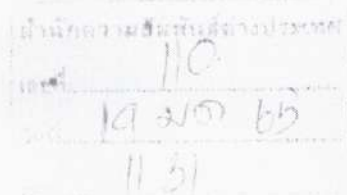 สำนักความสัมพันธ์ต่างประเทศ
เลขที่ 110
วันที่ 19 มค 65
11 31